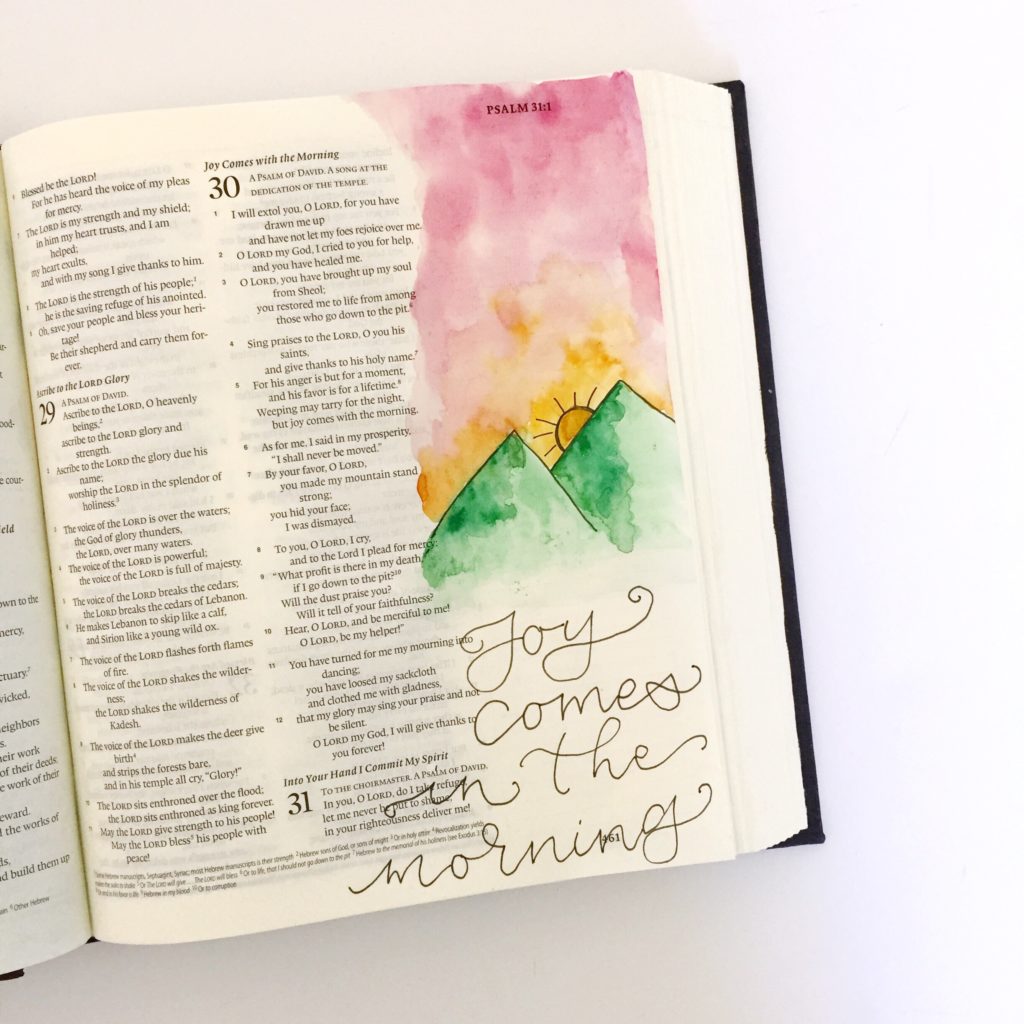 PSALM 31:1
Blessed be the LORD!
For he has heard the voice of my pleas
for mercy.
7 The LORD is my strength and my shield;
in him my heart trusts, and I am
helped;
my heart exults,
and with my song I give thanks to him.
8 The LORD is the strength of his people;1
he is the saving refuge of his anointed.
Oh, save your people and bless your heri-
tage!
Be their shepherd and carry them for-
ever.
Ascribe to the LORD Glory
29 A PSALM OF DAVID.
Ascribe to the LORD, O heavenly
beings,2
ascribe to the LORD glory and
strength.
2 Ascribe to the LORD the glory due his
name;
worship the LORD in the splendor of
holiness.3
3 The voice of the LORD is over the waters;
the God of glory thunders,
the LORD, over many waters.
4 The voice of the LORD is powerful;
the voice of the LORD is full of majesty.
5 The voice of the LORD breaks the cedars;
the LORD breaks the cedars of Lebanon.
6 He makes Lebanon to skip like a calf,
and Sirion like a young wild ox.
7 The voice of the LORD flashes forth flames
of fire.
8 The voice of the LORD shakes the wilder-
ness;
the LORD shakes the wilderness of
Kadesh.
9 The voice of the LORD makes the deer give
birth4
and strips the forests bare,
and in his temple all cry, "Glory!"
10 The LORD sits enthroned over the flood;
the LORD sits enthroned as king forever.
11 May the LORD give strength to his people!
May the LORD bless5 his people with
peace!
Joy Comes with the Morning
30 A PSALM OF DAVID. A SONG AT THE
DEDICATION OF THE TEMPLE.
1 I will extol you, O LORD, for you have
drawn me up
and have not let my foes rejoice over me.
2 O LORD my God, I cried to you for help,
and you have healed me.
3 O LORD, you have brought up my soul
from Sheol;
you restored me to life from among
those who go down to the pit.6
4 Sing praises to the LORD, O you his
saints,
and give thanks to his holy name.7
5 For his anger is but for a moment,
and his favor is for a lifetime.8
Weeping may tarry for the night,
but joy comes with the morning.
6 As for me, I said in my prosperity,
"I shall never be moved."
7 By your favor, O LORD,
you made my mountain stand
strong;
you hid your face;
I was dismayed.
8 To you, O LORD, I cry,
and to the Lord I plead for mercy:
9 "What profit is there in my death,
if I go down to the pit?10
Will the dust praise you?
Will it tell of your faithfulness?
10 Hear, O LORD, and be merciful to me!
O LORD, be my helper!"
11 You have turned for me my mourning into
dancing;
you have loosed my sackcloth
and clothed me with gladness,
12 that my glory may sing your praise and not
be silent.
O LORD my God, I will give thanks to
you forever!
Into Your Hand I Commit My Spirit
31 TO THE CHOIRMASTER. A PSALM OF DAVID.
In you, O LORD, do I take refuge;
let me never be put to shame;
in your righteousness deliver me!
Joy
comes
in the
morning
461